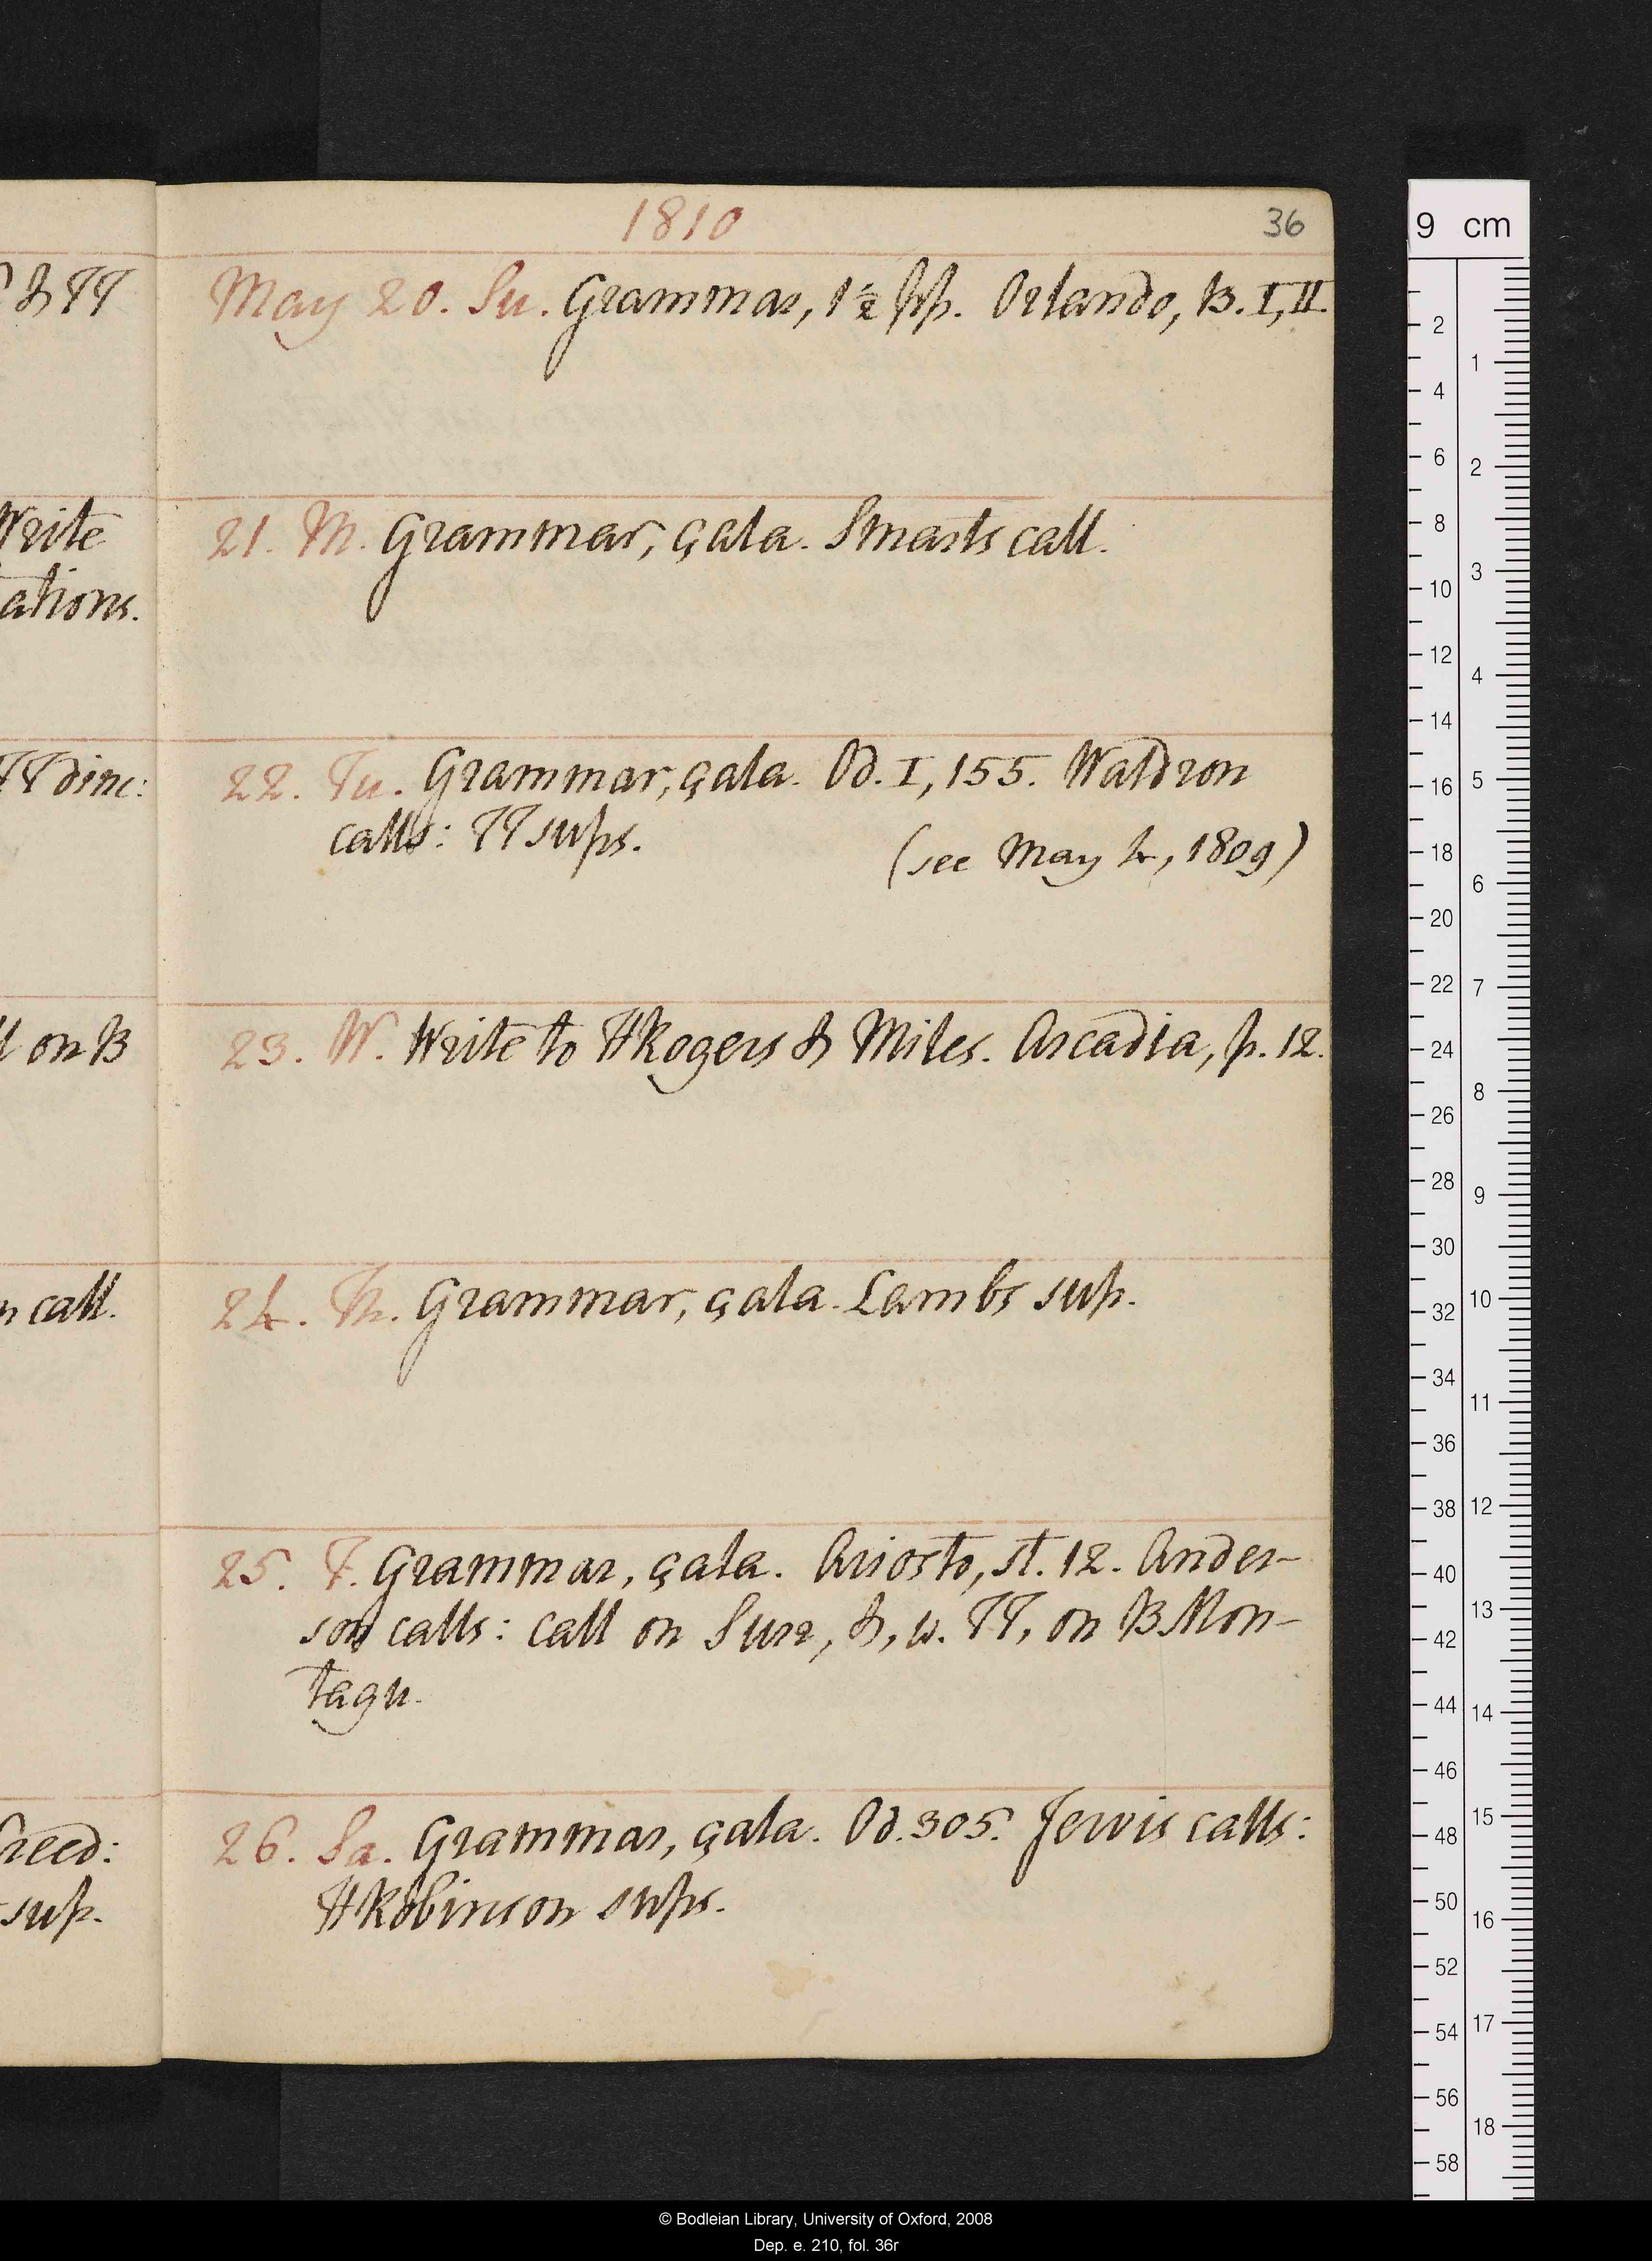 1810
36
& TT
May 20. Su. Grammar, 1½ pp. Orlando, B. I, II.
Write
ations.
21. M. Grammar, çala. Smarts call.
TT dine:
22. Tu. Grammar, çala. Od. I, 155. Waldron
calls: TT sups.
(see May 4, 1809)
on B
23. W. Write to HRogers & Miles. Arcadia, p. 12.
call.
24. Th. Grammar, çala. Lambs sup.
25. F. Grammar, çala. Ariosto, st. 12. Ander-
son calls: call on Surr, &, w. TT, on BMon-
tagu.
reed:
sup.
26. Sa. Grammar, çala. Od. 305. Jervis calls:
HRobinson sups.
9 cm
2
4
6
8
10
12
14
16
18
20
22
24
26
28
30
32
34
36
38
40
42
44
46
48
50
52
54
56
58
1
2
3
4
5
6
7
8
9
10
11
12
13
14
15
16
17
18
© Bodleian Library, University of Oxford, 2008
Dep. e. 210, fol. 36r